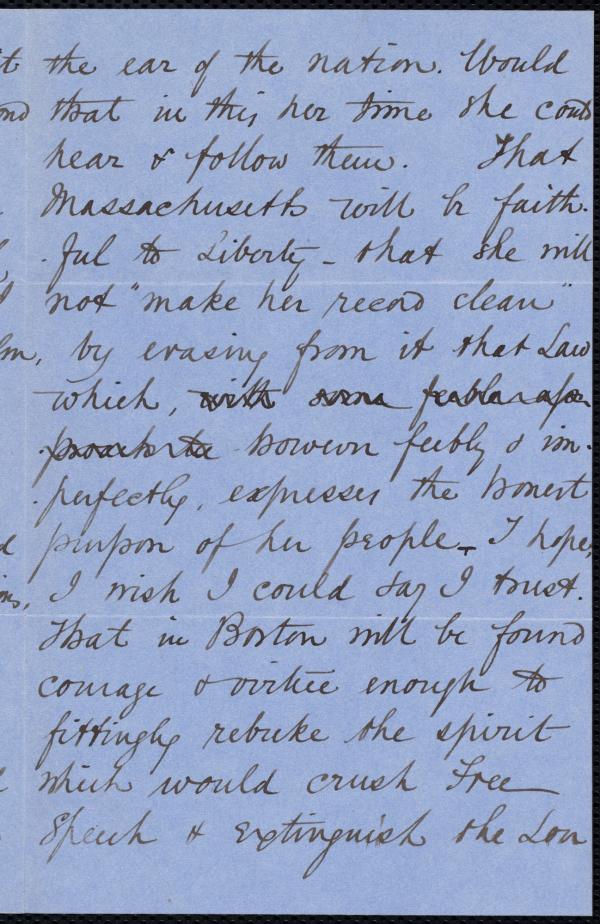 the ear of the nation. Would
that in this her time she could
hear & follow them. That
Massachusetts will be faith-
-ful to Liberty - that she will
not "make her record clean"
by erasing from it that Law
which, with some feeble ap-
proach to however feebly & im-
-perfectly, expresses the honest
purpose of her people - I hope,
I wish I could say I trust.
That in Boston will be found
courage & virtue enough to
fittingly rebuke the spirit
which would crush Free
Speech & extinguish the Lov